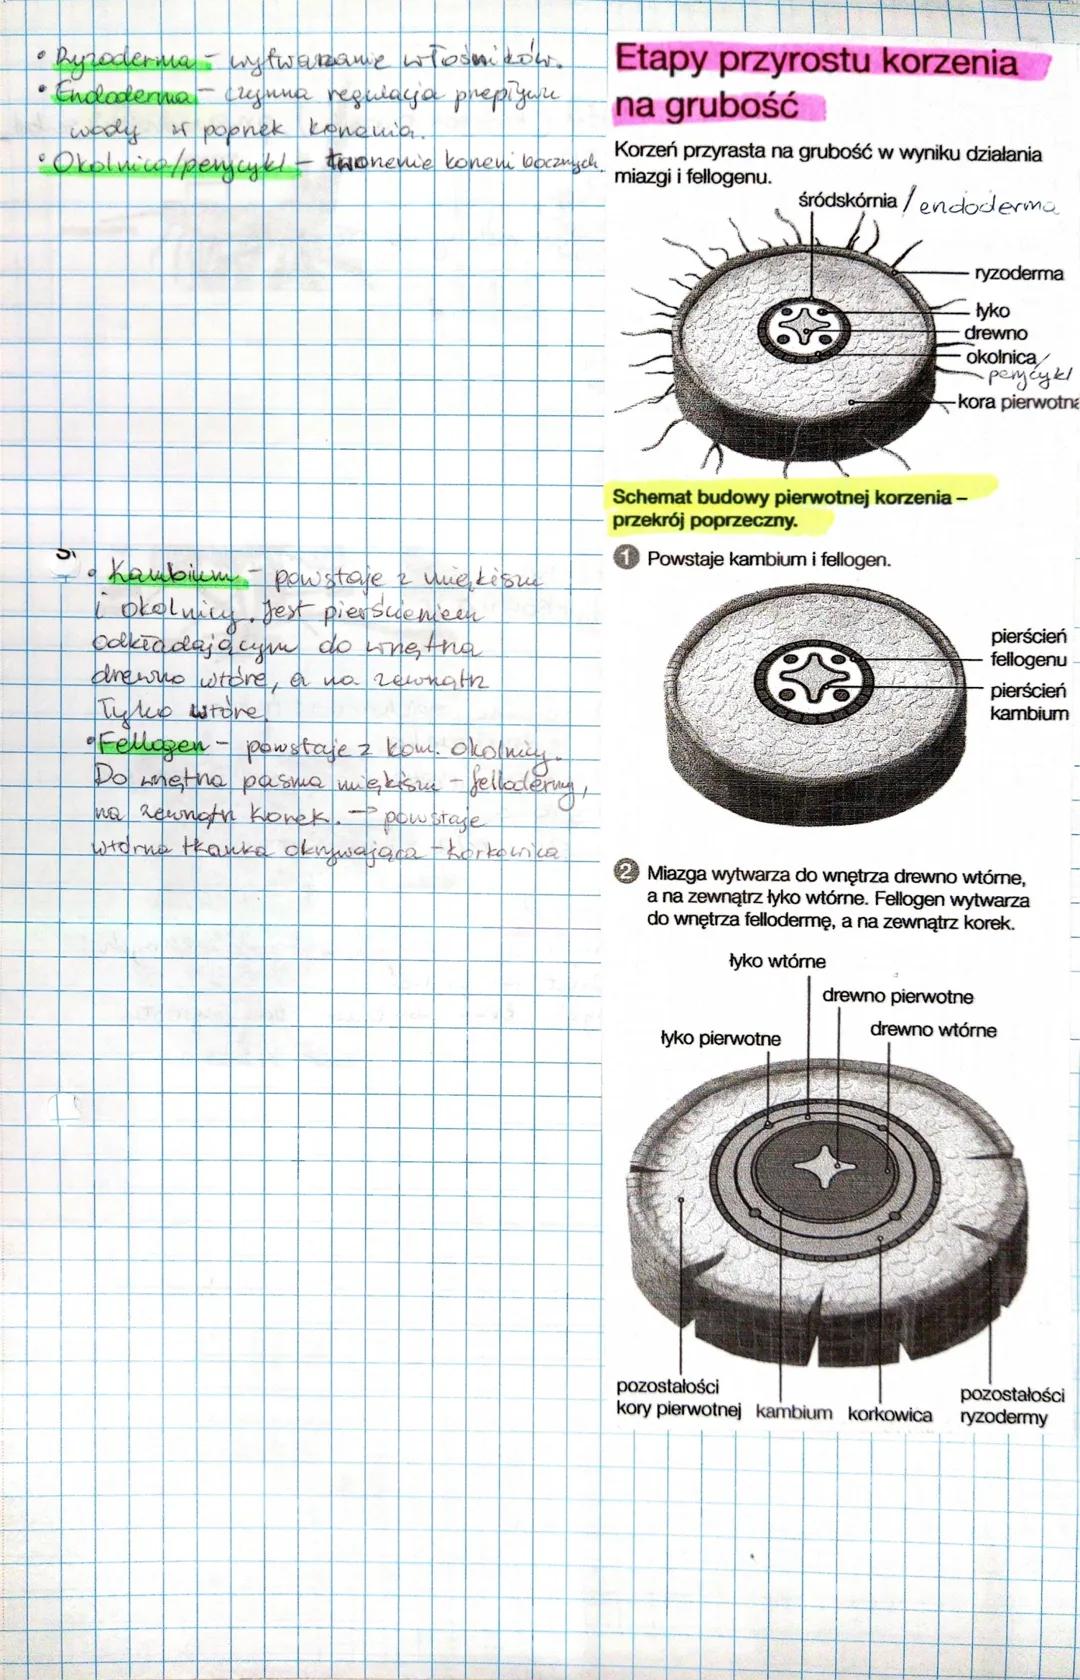 • Ryzoderma - wytwarzanie włośników.
• Endoderma - czynna regulacja przepływu
wody w poprzek korzenia.
• Okolnica/perycykl - tworzenie korzeni bocznych.
Etapy przyrostu korzenia
na grubość
Korzeń przyrasta na grubość w wyniku działania
miazgi i fellogenu.
śródskórnia / endoderma
ryzoderma
łyko
drewno
okolnica/
perycykl
kora pierwotna
Schemat budowy pierwotnej korzenia –
przekrój poprzeczny.
1 Powstaje kambium i fellogen.
• Kambium - powstaje z miękiszu
i okolnicy. Jest pierścieniem
odkładającym do wnętrza
drewno wtórne, a na zewnątrz
łyko wtórne.
• Fellogen - powstaje z kom. okolnicy.
Do wnętrza pasma miękiszu - fellodermy,
na zewnątrz korek. -> powstaje
wtórna tkanka okrywająca - korkowica
pierścień
fellogenu
pierścień
kambium
2 Miazga wytwarza do wnętrza drewno wtórne,
a na zewnątrz łyko wtórne. Fellogen wytwarza
do wnętrza fellodermę, a na zewnątrz korek.
łyko wtórne
drewno pierwotne
drewno wtórne
łyko pierwotne
pozostałości
kory pierwotnej
kambium
korkowica
pozostałości
ryzodermy